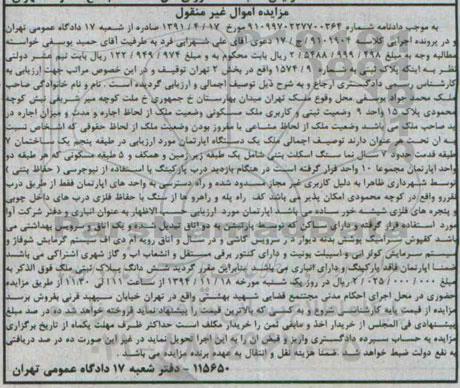 مزایده اموال غیر منقول
به موجب دادنامه شماره ۹۱۰۹۹۷۰۲۲۷۷۰۰۳۶۴ مورخ ۱۳۹۱/۴/۱۷ صادره از شعبه ۱۷ دادگاه عمومی تهران
و در پرونده اجرایی کلاسه ۹۱۰۲۹۰۴/ج/۱۷ دعوی آقای علی شهرابی فرد به طرفیت آقای حمید یوسفی خواسته
مطالبه وجه به مبلغ ریال بابت محکوم به و مبلغ ریال بابت نیم عشر دولتی
نظر به اینکه پلاک ثبتی به شماره واقع در بخش ۲ تهران توقیف و در این خصوص مراتب جهت ارزیابی به
کارشناس رسمی دادگستری ارجاع و به شرح ذیل توصیف اجمالی و ارزیابی گردیده است. نام و نام خانوادگی صاحب
ملک محمد جواد یوسفی محل وقوع ملک تهران میدان بهارستان خ جمهوری خ ملت کوچه میر شریفی نبش کوچه
محمودی پلاک ۱۵ واحد ۹ وضعیت ثبتی و کاربری ملک مسکونی وضعیت ملک از لحاظ اجاره و مدت و میزان اجاره در
ید صاحب ملک می باشد. وضعیت ملک از لحاظ مشاعی یا مفروز بودن وضعیت ملک از لحاظ حقوقی که اشخاص نسبت
به آن تحصیل عنوان دارند توصیف اجمالی ملک یک دستگاه آپارتمان مورد ارزیابی در طبقه پنجم یک ساختمان ۷
طبقه قدمت حدود سال نما سنگ اسکلت بتنی شامل یک طبقه زیرزمین و همکف و ۵ طبقه مسکونی که در طبقه دو
واحد آپارتمان مجموعا ۱۰ واحد قرار گرفته است در هنگام بازدید درب پارکینگ با استفاده از نیوجرسی (حفاظ بتنی)
توسط شهرداری ظاهرا به دلیل کاربری غیر مجاز مسدود شده و راه دسترسی به واحد های آپارتمان فقط از طریق درب
نفررو واقع در کوچه محمودی امکان پذیر می باشد کف راه پله و راهرو ها از سنگ با حفاظ فلزی درب های داخل چوبی
و پنجره های فلزی شیشه خور ساده می باشد. آپارتمان مورد ارزیابی حسب الاظهار به عنوان انباری و دفتر شرکت آوا
مورد استفاده قرار گرفته و دارای سالن که با نصب پارتیشن به دو اتاق تبدیل شده و یک اتاق و سرویس بهداشتی می
باشد کفپوش سرامیک پوشش بدنه دیوار در سرویس کاشی و در سالن و اتاق رویه ام دی اف سیستم گرمایش شوفاژ و
سیستم سرمایش کولر آبی و اسپیلت یونیت و دارای کنتور برقی مستقل و انشعاب آب و گاز شهری اشتراکی می باشد.
ضمنا آپارتمان فاقد پارکینگ و دارای انباری می باشد بنابراین مقرر گردید شش دانگ پلاک ثبتی ملک فوق الذکر به
مبلغ ۲/۰۲۵/۰۰۰/۰۰۰ ریال در روز یک شنبه مورخه ۱۳۹۳/۱۱/۱۸ از ساعت ۱۱ الی ۱۱:۳۰ از طریق مزایده
حضوری در محل اجرای احکام مدنی مجتمع قضایی شهید بهشتی واقع در تهران خیابان سپهبد قرنی بفروش برسد.
مزایده از قیمت پایه کارشناسی شروع و به کسی که بالاترین قیمت را پیشنهاد نماید فروخته خواهد شد ده در صد مبلغ
پیشنهادی فی المجلس از خریدار اخذ و مابقی ثمن را خریدار مکلف است حداکثر ظرف مهلت یکماه از تاریخ برگزاری
مزایده به حساب سپرده دادگستری واریز و فیش آن را به این اجرا تحویل نماید در غیر این صورت ده در صد دریافتی
به نفع دولت ضبط خواهد شد. ضمنا هزینه نقل و انتقال به عهده برنده مزایده می باشد.
۱۱۵۶۵۰ - دفتر شعبه ۱۷ دادگاه عمومی تهران